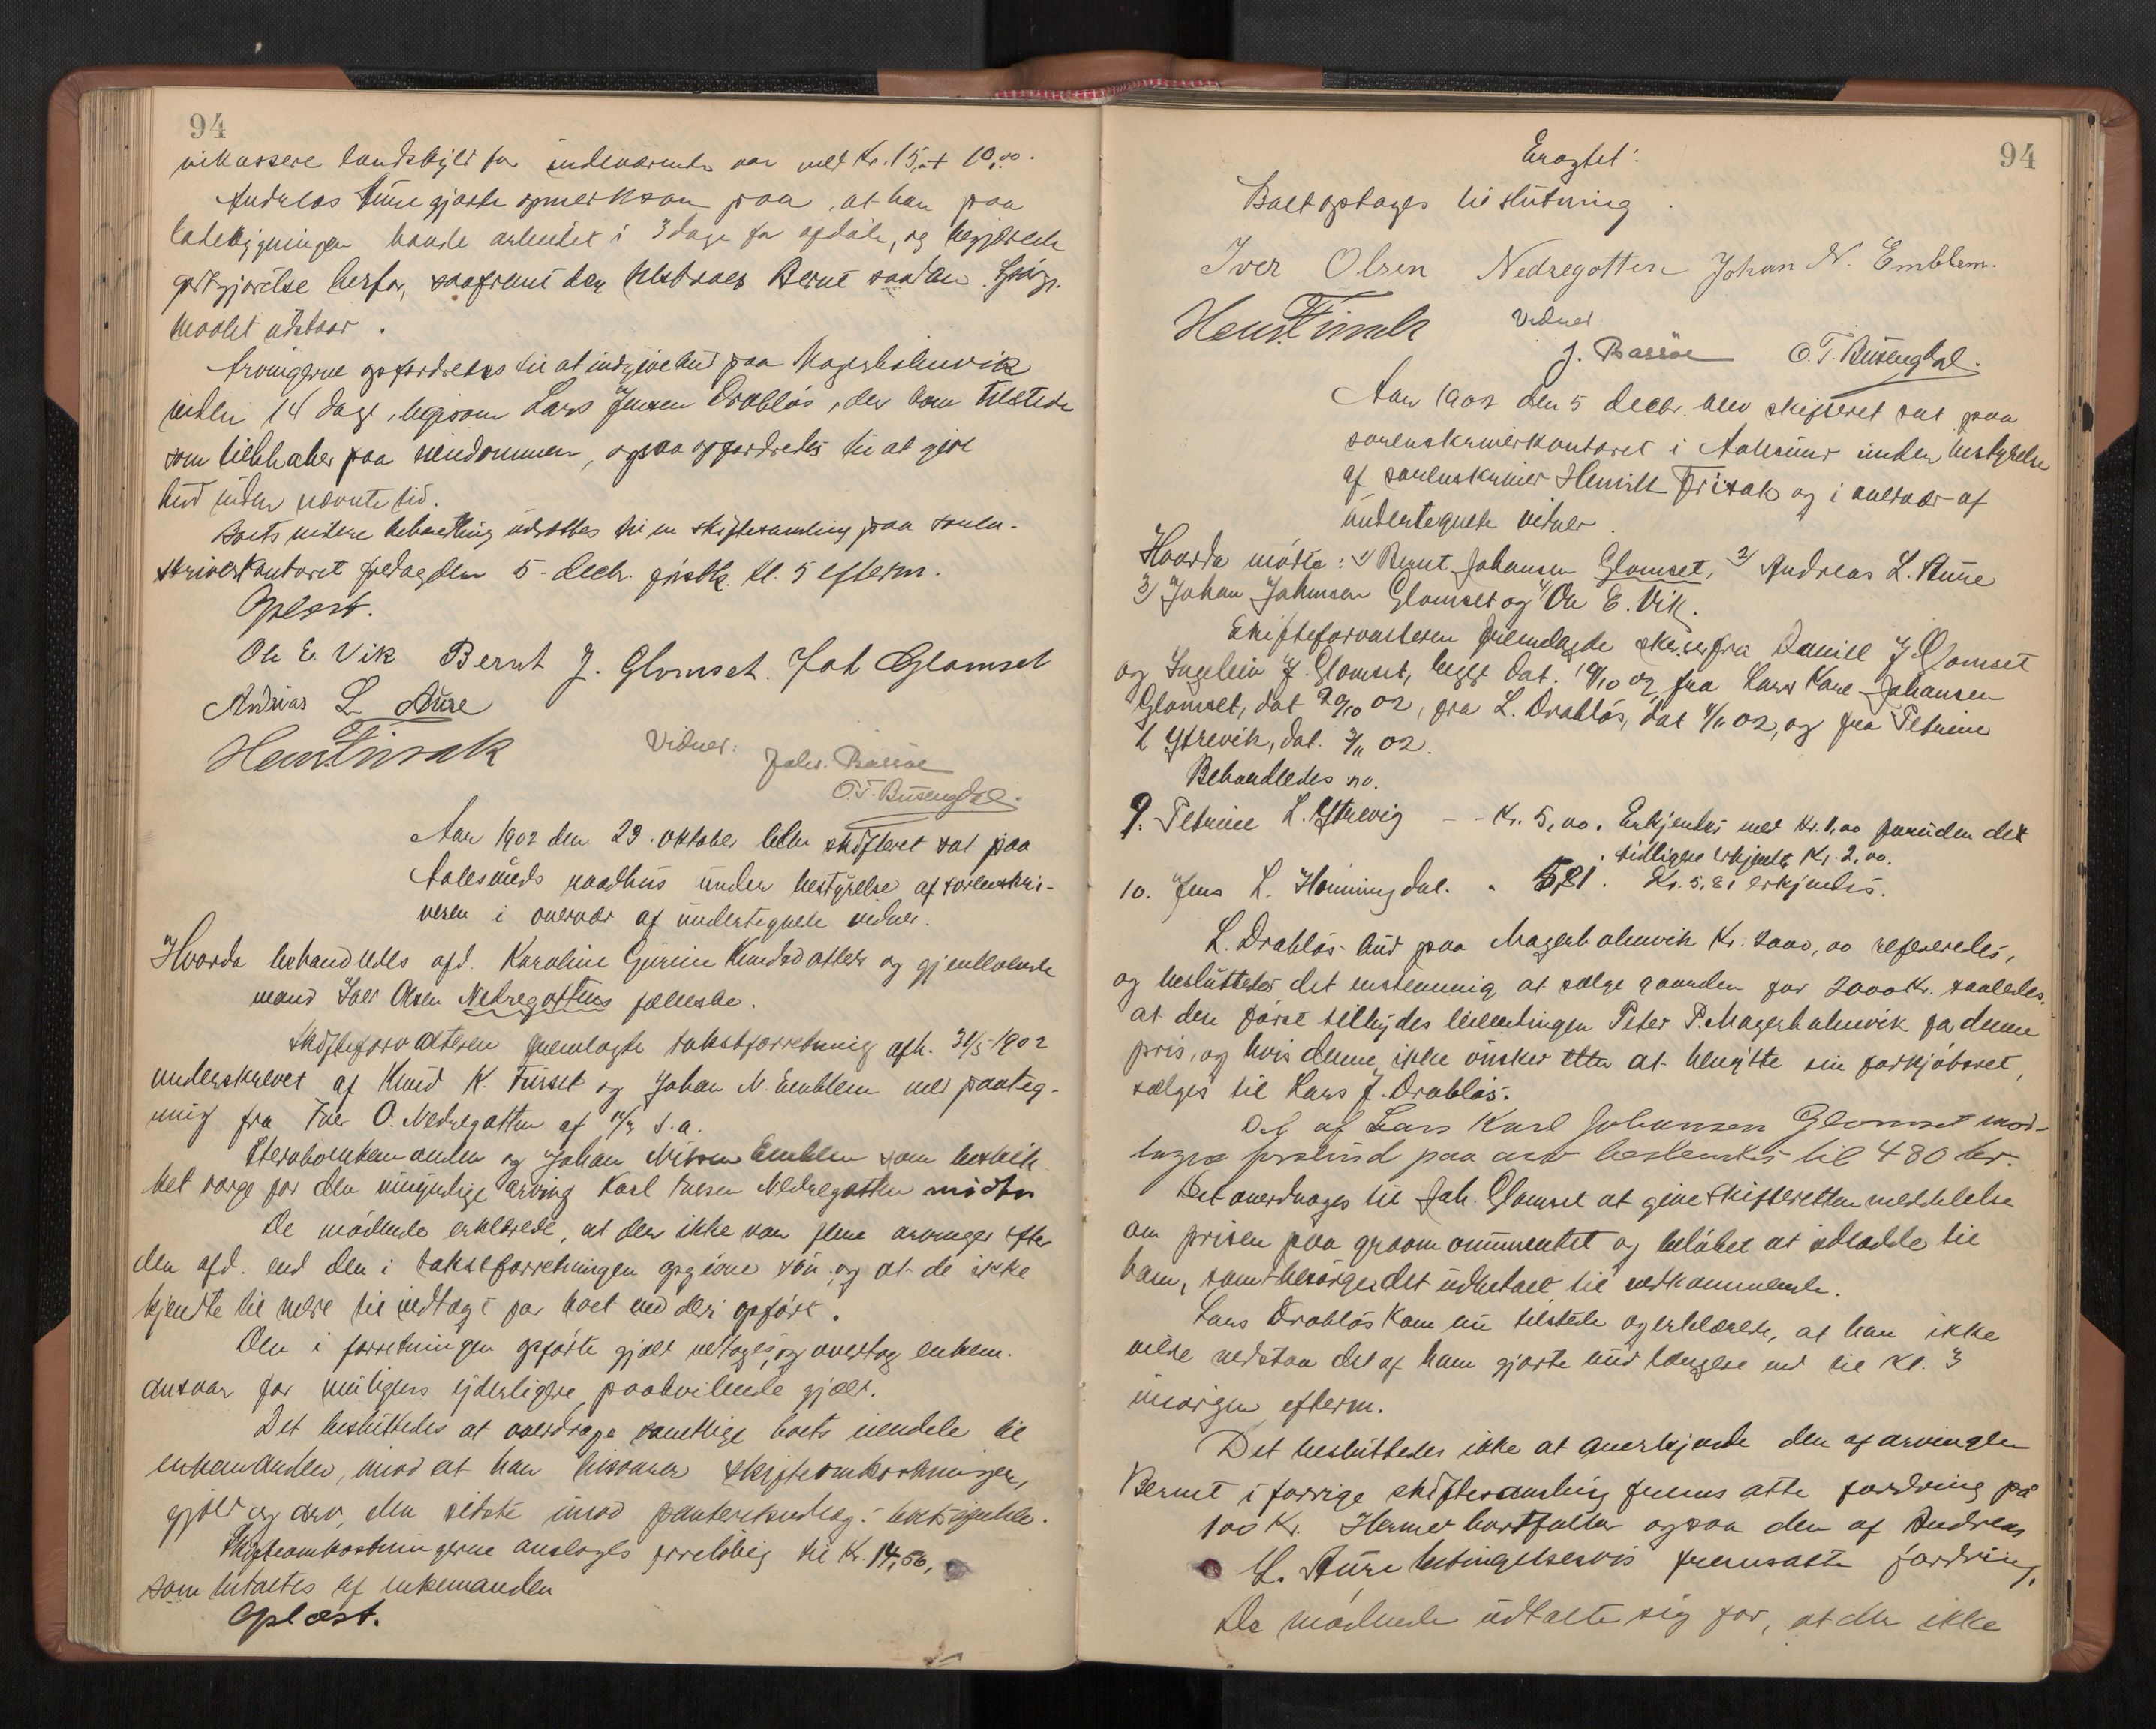 94
inkassere landskyld for indeværende aar med Kr. 15,00 + 10,00.
Andreas Aure gjorte opmerksom paa, at han paa
ladebygningen havde arbeidet i 3 dage for afdøde, og begjærede
godtgjørelse herfor, saafremt den Bernt
udstaar.
Arvingerne opfordredes til at indgive bud paa Magerholmvik
inden 14 dage, ligesom Lars Jensen Drabløs, der kom tilstede
som liebhaber paa eiendommen, ogsaa opfordredes til at give
bud inden nævnte tid.
Boets videre behandling udsattes til en skiftesamling paa soren-
skriverkontoret fredag den 5. decbr. førstk. kl. 5 efterm.
Oplæst.
Ole E. Vik Bernt J. Glomset. Joh Glomset
Andrias L Aure
Henr. Frisak Vidner: Johs. Bassøe
O.T. Busengdal.
Aar 1902 den 29. oktober blev skifteret sat paa
Aalesunds raadhus under bestyrelse af sorenskri-
veren i overvær af undertegnede vidner.
Hvorda behandledes afd. Karoline Gurine Knudsdatters og gjenlevende
mand Iver Olsen Nedregottens fællesbo.
Skifteforvalteren fremlagte takstforretning afh. 31/5 1902
underskrevet af Knud K. Furset og Johan N. Emblem med paateg-
ning fra Iver O. Nedregotten af s.a.
Sterbo enkemanden og Johan Nilsen Emblem som beskik-
ket værge for den umyndige arving Karl Iversen Nedregotten mødte
De mødende erklærede, at der ikke var flere arvinger efter
den afd. end den i takstforretningen opgivne søn og at de ikke
kjendte til mere til indtægt for boet end deri opført.
Den i forretningen opførte gjæld vedtoges, og overtog enkem.
ansvar for muligens yderligere paahvilende gjæld.
Det besluttedes at overdrage samtlige boets eiendele til
enkemanden, imod at han tilsvarer skifteomkostninger,
gjæld og arv, den sidste imod panteretsudlæg i boets eiendele.
Skifteomkostningerne ansloges foreløbig til Kr. 14,56,
som betaltes af enkemanden
Oplæst.
94
Eragtet:
Boet optages til slutning.
Iver Olsen Nedregotten Johan N. Emblem.
Henr. Frisak Vidner
J. Bassøe O.T. Busengdal.
Aar 1902 den 5 decbr. blev skifteret sat paa
sorenskriverkontoret i Aalesund under bestyrelse
af sorenskriver Henrik Frisak og i overvær af
undertegnede vidner.
Hvorda mødte: 1) Bernt Johansen Glomset, 2) Andreas L. Aure
3) Johan Johansen Glomset og 4) Ole E. Vik.
Skifteforvalteren fremlagde skr.ser fra Daniel J. Glomset
og Ingebrigt J. Glomset, begge dat. 19/10 02, fra Lars Karl Johansen
Glomset, dat 20/10 02, fra L. Drabløs, dat 4/11 02, og fra Petrine
L Ytrevik, dat. 3/11 02.
Behandledes no.
9. Petrine L. Ytrevig - - Kr. 5,00. Erkjendes med Kr. 1,00 foruden det
tidligere erkjendte Kr. 2,00.
10. Jens L. Honningdal. " 5,81. Kr. 5,81 erkjendes.
L. Drabløs bud paa Magerholmvik Kr. 2000,00 refereredes,
og besluttedes det enstemmig at sælge gaarden for 2000 Kr. saaledes,
at den først tilbydes leilendingen Peter P. Magerholmvik for denne
pris, og hvis denne ikke ønsker at benytte sin forkjøbsret,
sælges til Lars J. Drabløs.
Det af Lars Karl Johansen Glomset mod-
tagne forskud paa arv bestemtes til 480 kr.
Det overdroges til Joh. Glomset at give skifteretten meddelelse
om prisen paa gravmonumentet og beløbet at udbetale til
ham, samt besørger det udbetalt til vedkommende.
Lars Drabløs kom nu tilstede og erklærede, at han ikke
vilde vedstaa det af ham gjorte bud længere end til kl. 3
imorgen efterm.
Det besluttedes ikke at anerkjende den af arvingen
Bernt i forrige skiftesamling fremsatte fordring på
100 Kr. Hermed bortfalder ogsaa den af Andreas
L. Aure betingelsesvis fremsatte fordring.
De mødende udtalte sig for, at der ikke